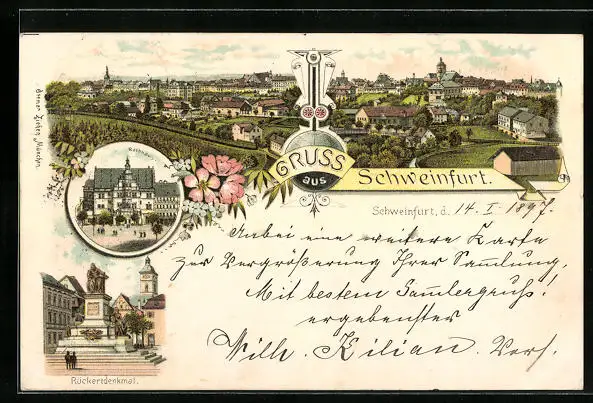 Rathhaus
GRUSS
aus
Schweinfurt.
Schweinfurt, d. 14. I. 1897.
Anbei eine weitere Karte
zur Vergrößerung Ihrer Sammlung.
Mit bestem Sam̄lergruß!
ergebenster
Wilh. Kilian. Vors.
Rückertdenkmal.